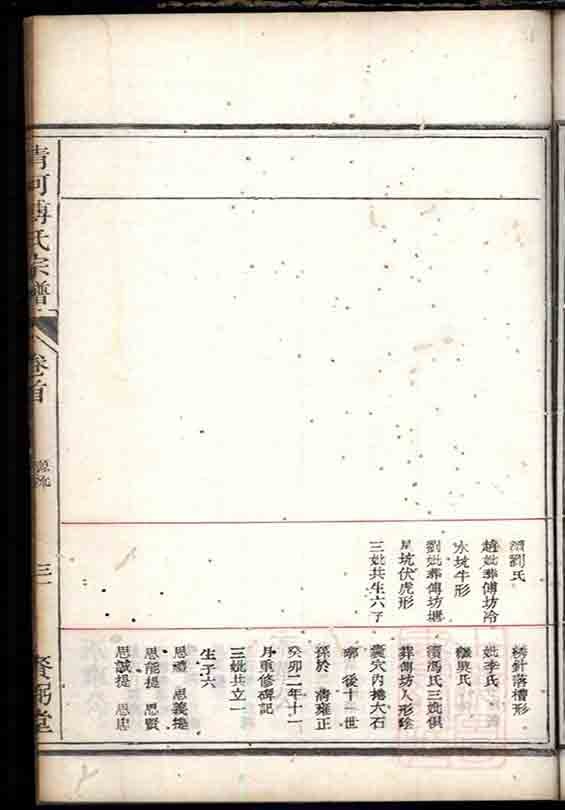 續劉氏
趙妣葬傅坊冷
水坑牛形
劉妣葬傅坊
坑伏虎形
三妣共生六子
針落槽形
妣李氏
繼吳氏
續馮氏三妣俱
葬傅坊人形
囊穴內捲大石
後十一世
孫於 清雍正
癸卯二年十一
月重修碑記
三妣共立一
生子六
思禮 思義提
思能提 思賢
思誠提 思忠
清河傅氏宗譜
卷首
源流
三一
賚弼堂